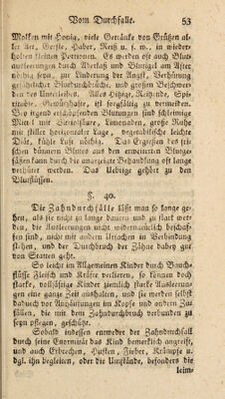 Vom Durchfalle. 53
Molken mit Honig, viele Getränke von Grüßen al-
ler Art, Gerste, Haber, Reiß u. s. w., in wieder-
holten kleinen Portionen. Es werden oft auch Blut-
ausleerungen durch Aderlaß und Blutigel am After
nöthig seyn, zur Linderung der Angst, Verhütung
gefährlicher Blutdurchbrüche, und großen Beschwer-
den des Unterleibes. Alles Hitzige, Reitzende, Spiri-
tuöse, Gegohrne, Stopfende muß vermieden werden.
Bey irgend erheblichen Blutungen sind säuerliche
Mittel mit Vitriolsäure, Limonaden, große Ruhe
mit horizontaler Lage, vegetabilische leichte
Diät, kühle Luft nöthig. Das Ergießen des tri-
schen dünnen Blutes aus den erschlafften
Gefäßen kann durch die unzeitige Behandlung oft lange
verhütet werden. Das Uebrige gehört zu den
Blutflüssen.
§. 40.
Die Zahndurchfälle läßt man so lange ge-
hen, als sie nicht zu lange dauern und zu stark wer-
den, die Ausleerungen nicht ungewöhnlich und übel
beschaffen sind, nicht mit andern Ursachen in Verbindung
stehen, und der Durchbruch der Zähne dabey gut
von Statten geht.
So leicht im Allgemeinen Kinder durch Bauch-
flüsse Fleisch und Kräfte verlieren, so können doch
starke, volle Kinder ziemlich lange starke Ausleerun-
gen eine geraume Zeit aushalten, und sie werden selbst
dadurch vor Anhäufungen im Kopfe und andern Zu-
fällen, die mit dem Zahndurchbruch verbunden zu
seyn pflegen, geschützt.
Sobald indessen entweder der Zahndurchfall
durch seine Enormität das Kind bemerklich angreift,
und auch Erbrechen, Husten, Fieber, Krämpfe u.
dgl. ihn begleiten, oder die Umstände, besonders die
leim-